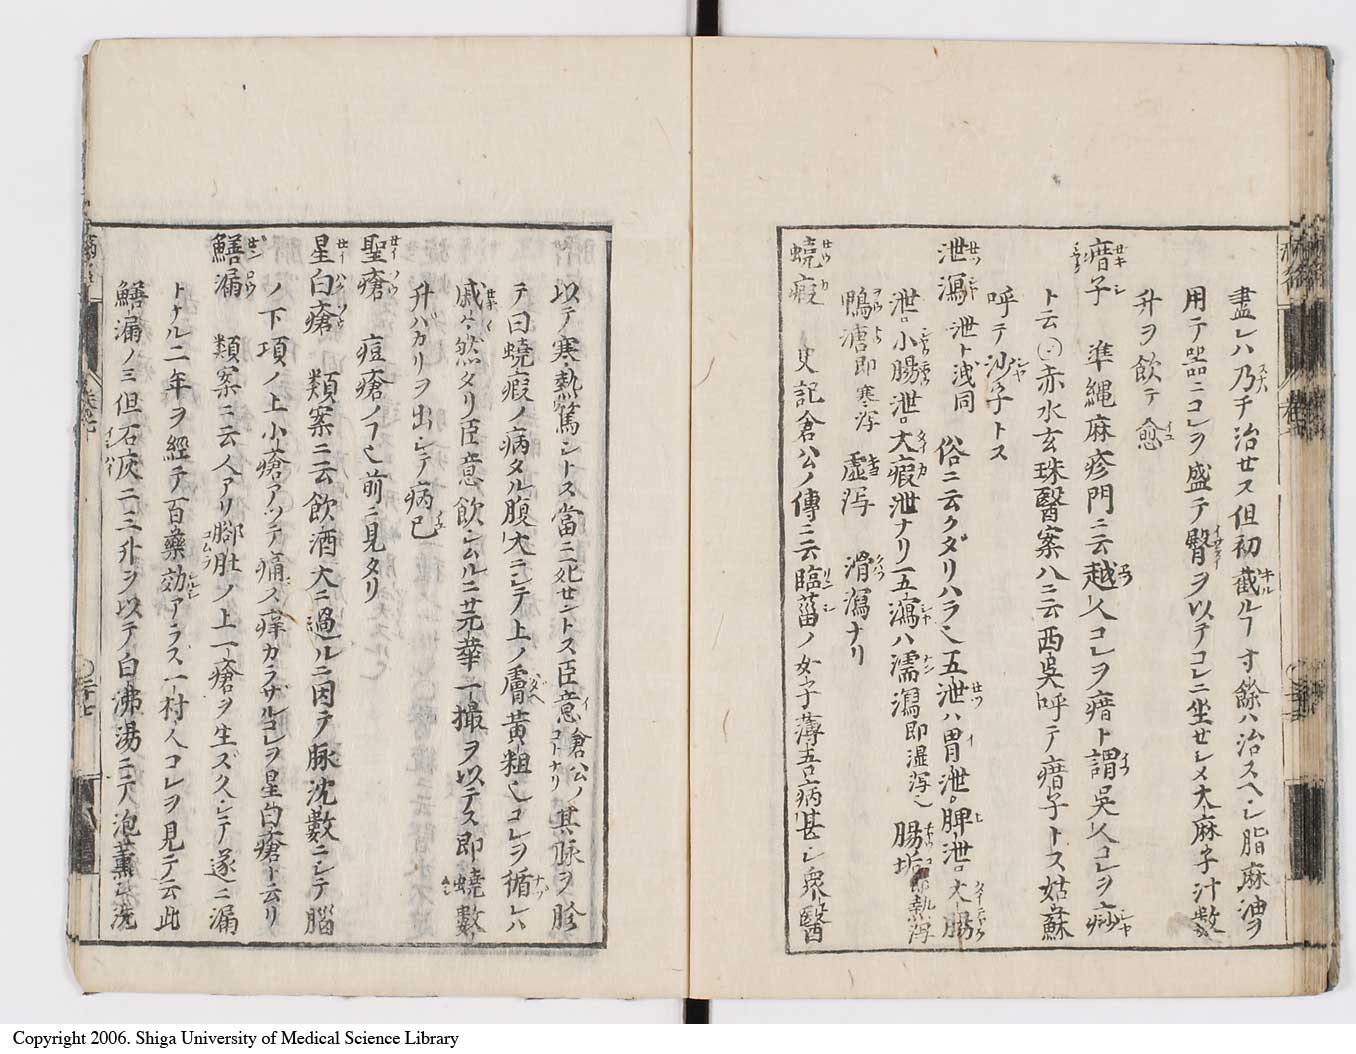 盡レハ乃チ治セス但初截ルヿ寸餘ハ治スヘシ脂麻油ヲ
用テ器ニコレヲ盛テ臀ヲ以テコレニ坐セシメ大麻子汁數
升ヲ飲テ愈
瘖子 準縄麻疹門ニ云越人コレヲ瘖ト謂呉人コレヲ痧
ト云 赤水玄珠醫案八ニ云西呉呼テ瘖子トス姑蘇
呼テ沙子トス
泄瀉 泄ト洩同 俗ニ云クダリハラ也五泄ハ胃泄脾泄大腸
泄小腸泄大瘕泄ナリ五瀉ハ濡瀉即湿泻也腸垢即熱泻
鴨溏即寒泻 虚泻 滑瀉ナリ
蟯瘕 史記倉公ノ傳ニ云臨菑ノ女子薄吾病甚シ衆醫
以テ寒熱篤シトス當ニ死セントス臣意倉公ノコトナリ其脉ヲ胗
テ曰蟯瘕ノ病タル腹大ニシテ上ノ膚黄粗也コレヲ循レハ
戚々然タリ臣意飲シムルニ芫華一撮ヲ以テス即蟯數
升バカリヲ出シテ病已
聖瘡 痘瘡ノヿ也前ニ見タリ
星白瘡 類案ニ云飲酒大ニ過ルニ因テ脉沈數ニシテ腦
ノ下項ノ上小瘡アツテ痛ス痒カラザルコレヲ星白瘡ト云リ
鱔漏 類案ニ云人アリ脚肚ノ上一瘡ヲ生ズ久シテ遂ニ漏
トナル二年ヲ經テ百藥効アラス一村人コレヲ見テ云此
鱔漏ノミ但石灰二三升ヲ以テ白沸湯ニテ泡薫シ洗
Copyright 2006. Shiga University of Medical Science Library